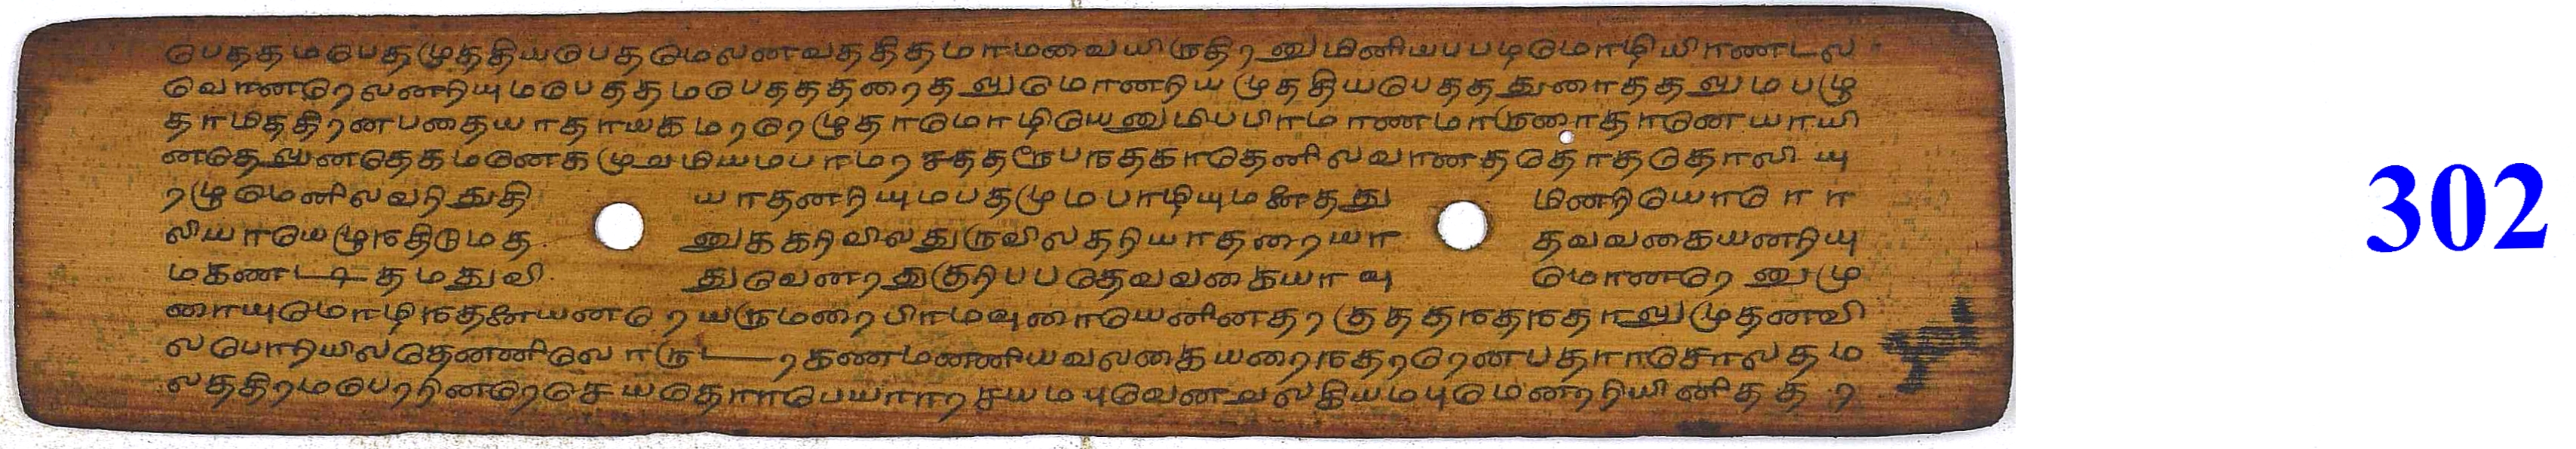 பெததமபெதமுததியபெதமெலனவததிதமாமவையிருதிரனுமினியபபடிமொழியிரணடல
வொனறெலனறியுமபெததமபெதததரைதலுமொனறியமுததியபெதததுரைததலுமபழு
தாமிததிரனபதையாதாயகமறறெழுதாமொழியெனுமிபபிரமாணமாருரைதானெயாயி
னதெலுனதெகமனெகமுவமியமபாமறசததரூபநதகாதெனிலவானததொததொலியு
ரழுமெனிலவறிதுதி யாதனறியுமபதமுமபாழியுமனைதது மினறியொரா
லியாயெழுநதிடுமத னுககறிவிலதுருவிலதறியாதரையா தவவகையனறியு
மகணடிதமதுவி துவெனறதுகுறிபபதெவவகையாவு மொனறெனுமு
ரையுமொழிநதனையனறெயருமறைபிரமவுரையெனினதரகுததநதநதாலுமுதனவி
லபொறியிலதெனனிவொருடறகணமணணியவலகையரைநதறறெனபதாரசொலதம
லததிரமபெறறினறெசெயதொரபெயாரரசயமபுவெனவலகியமபுமெனறறியினிதத ற
302